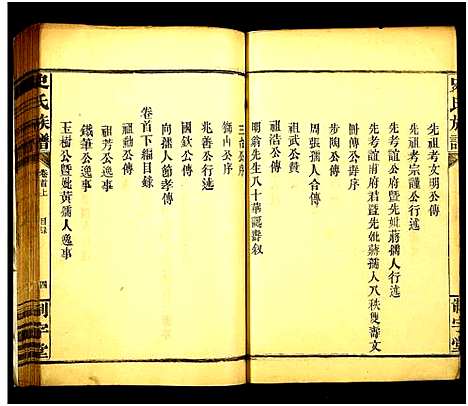 史氏族譜
先祖考文明公傳
先祖考宗謹公行述
先考誼公府君暨先妣蔣孺人行述
先考誼甫府君暨先妣蔣孺人八秩雙壽文
傅公壽序
步陶公傳
周張孺人合傳
祖武公贊
祖浩公傳
明翁先生八十華誕壽敘
制字堂
三台公序
錫占公序
兆善公行述
國欽公傳
向孺人節孝傳
祖勳公傳
卷首下編目錄
祖芳公逸事
鐵筆公逸事
玉樹公暨妣黃孺人逸事
史氏族譜
卷首上
目錄
四
制字堂